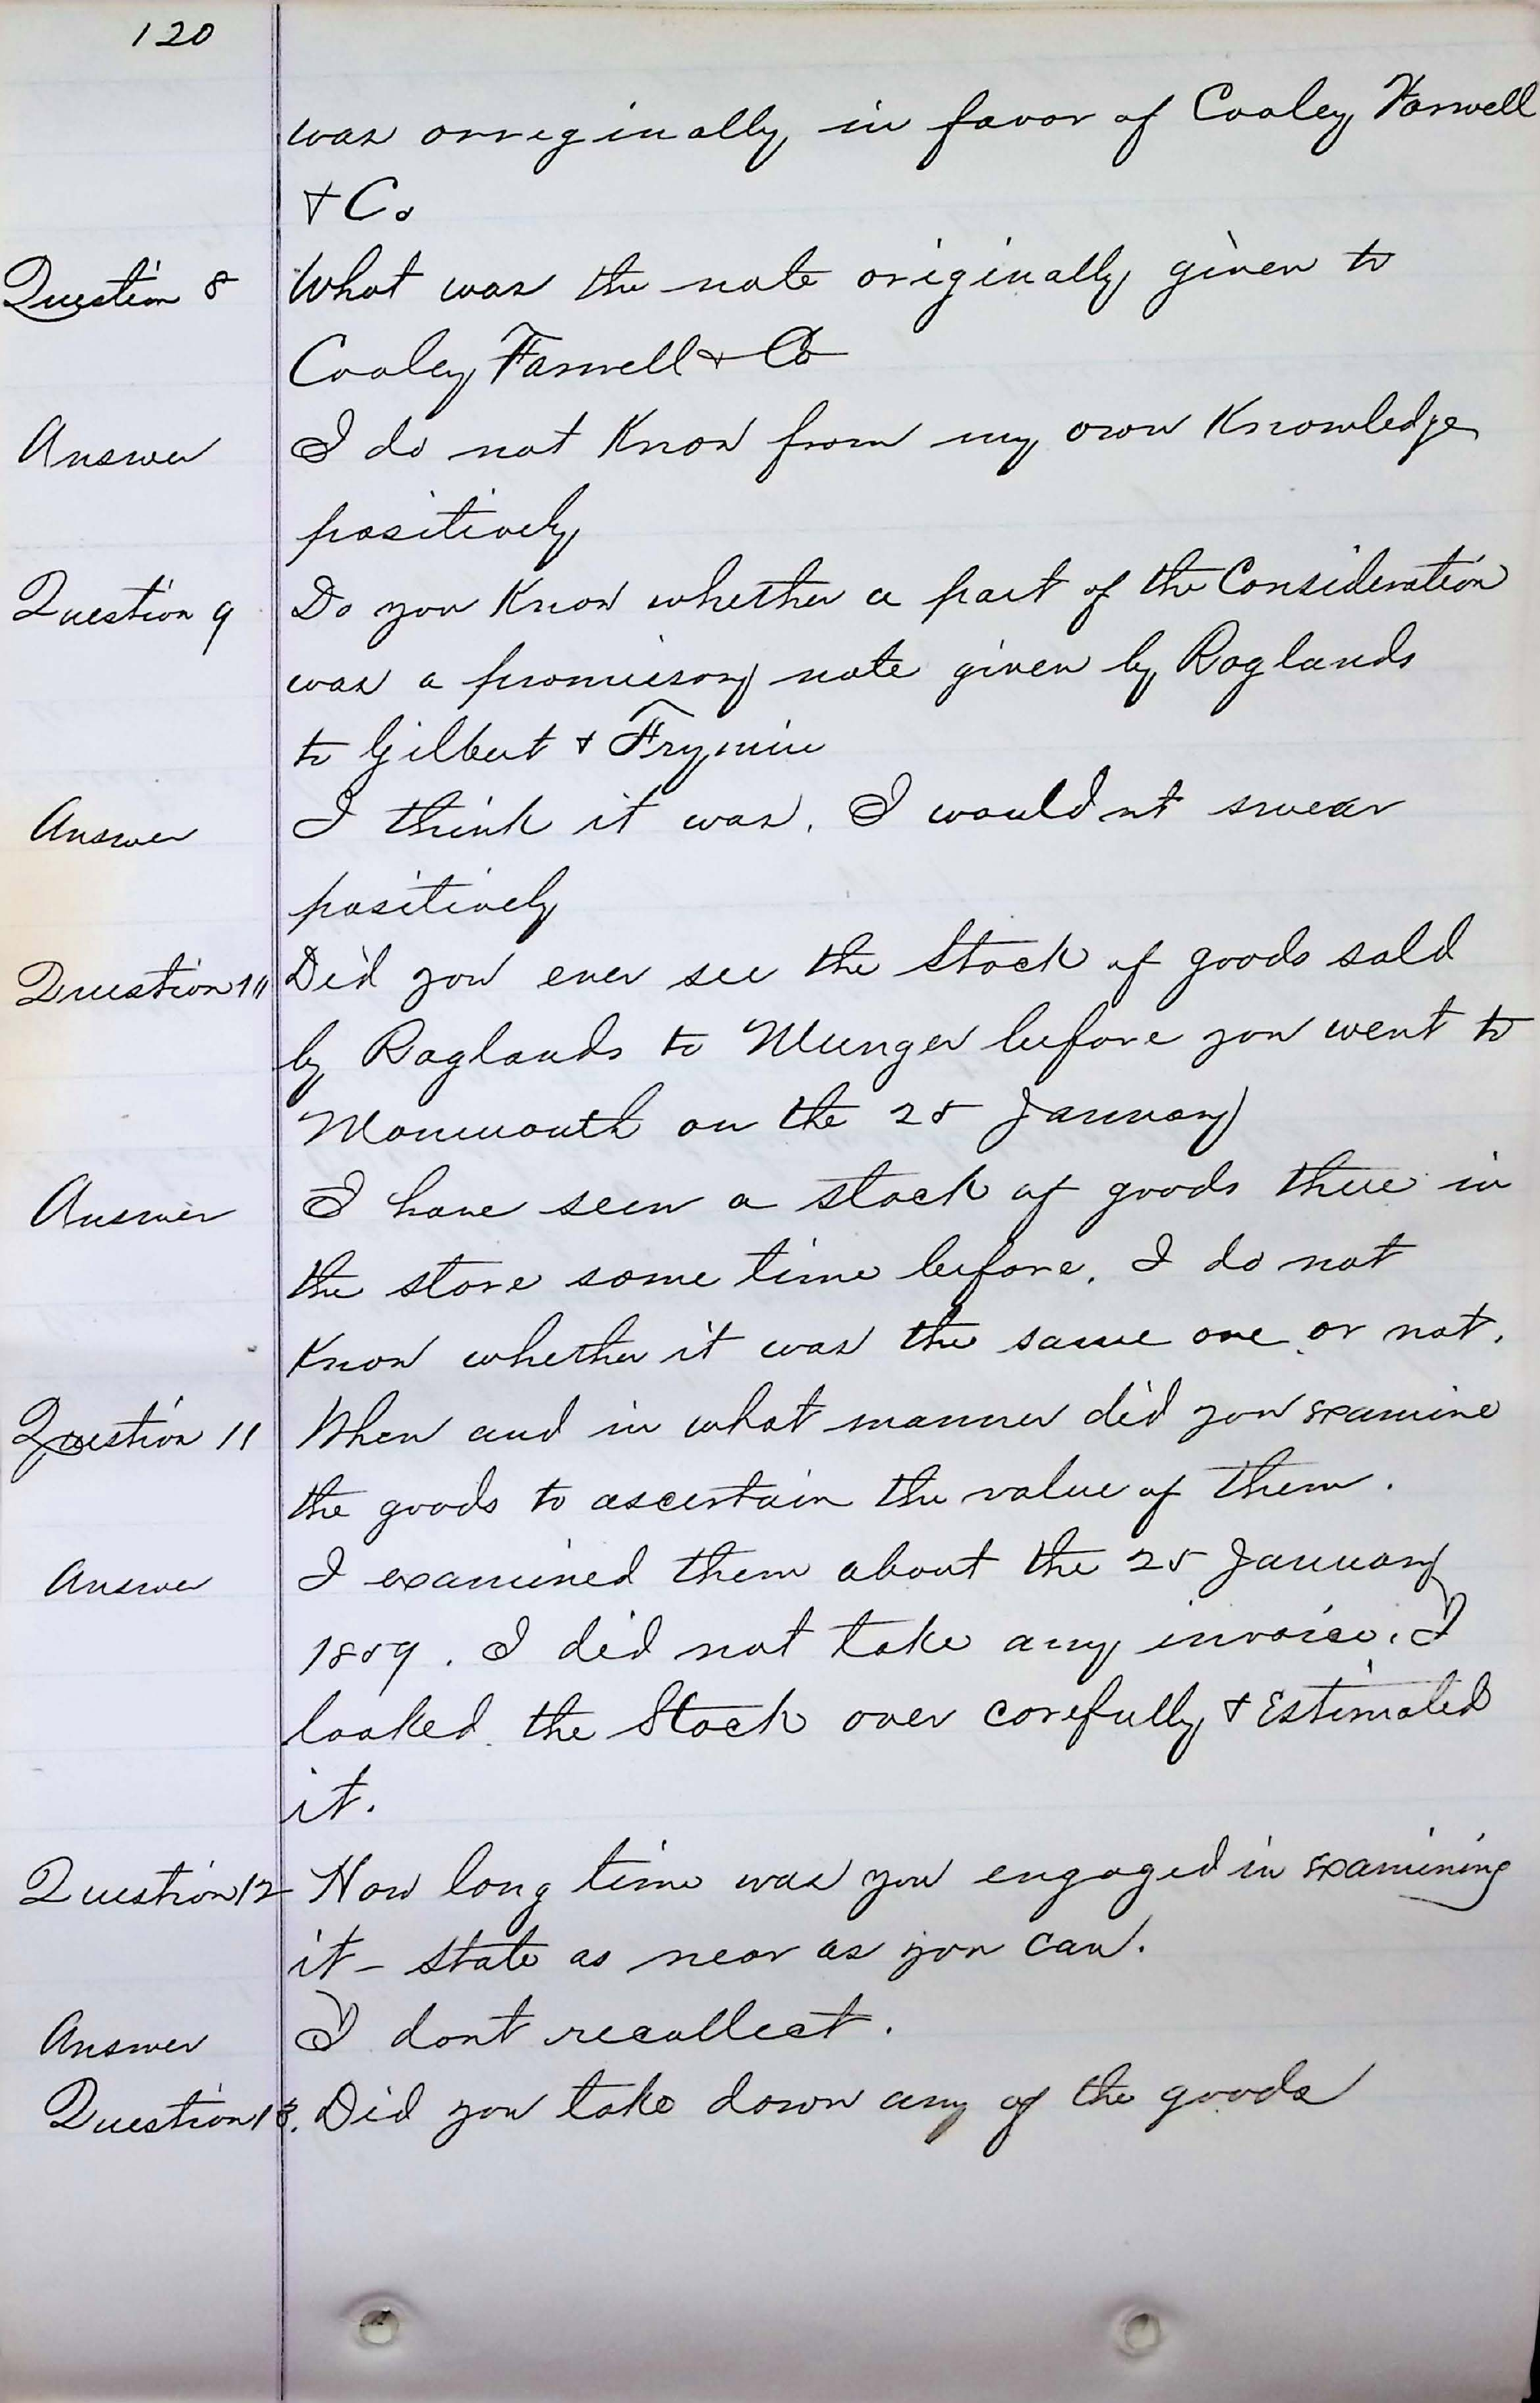 120
was orreginally in favor of Cooley Farwell
& Co
Question 8 What was the note originally given to
Cooley Farwell & Co
Answer I do not Know from my own Knowledge
positively
Question 9 Do you Know whether a part of the Consideration
was a promisory note given by Raglands
to Gilbert & Frymin
Answer I think it was. I would nt swear
positively
Question 11 Did you ever see the Stock of goods sold
by Raglands to Munger before you went to
Monmouth on the 25 January
Answer I have seen a stock of goods there in
the store some time before. I do not
Know whether it was the same one or not.
Question 11 When and in what manner did you examine
the goods to ascertain the value of them.
Answer I examined them about the 25 January
1859. I did not take any invoice. I
looked the Stock over carefully & Estimated
it.
Question 12 How long time was you engaged in examining
it - state as near as you can.
Answer I dont recollect.
Question 13. Did you take down any of the goods